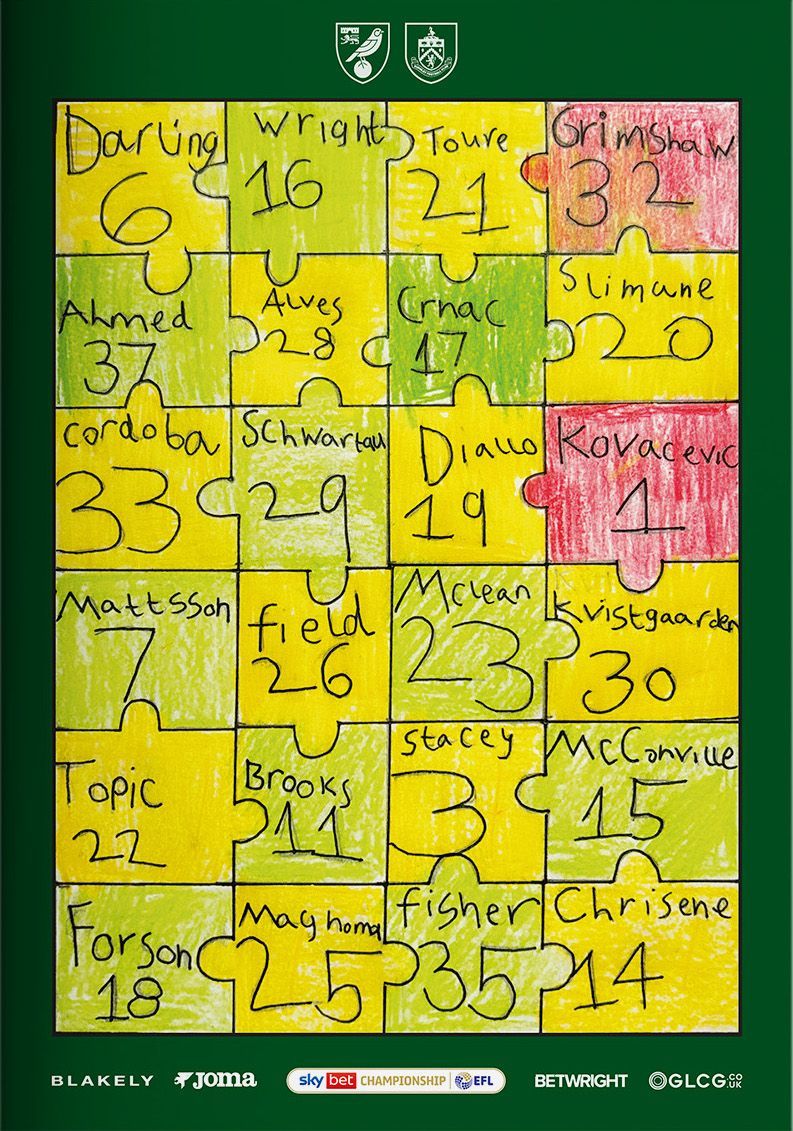 Darling
6
Wright
16
Toure
21
Grimshaw
32
Ahmed
37
Alves
28
Crnac
17
Slimane
20
Cordoba
33
Schwartau
29
Diallo
19
Kovacevic
1
Mattsson
7
field
26
Mclean
23
Kvistgaarden
30
Topic
22
Brooks
11
Stacey
3
McConville
15
Forson
18
Maghoma
25
fisher
35
Chrisene
14
BLAKELY joma sky bet CHAMPIONSHIP EFL BETWRIGHT GLCG.CO.UK